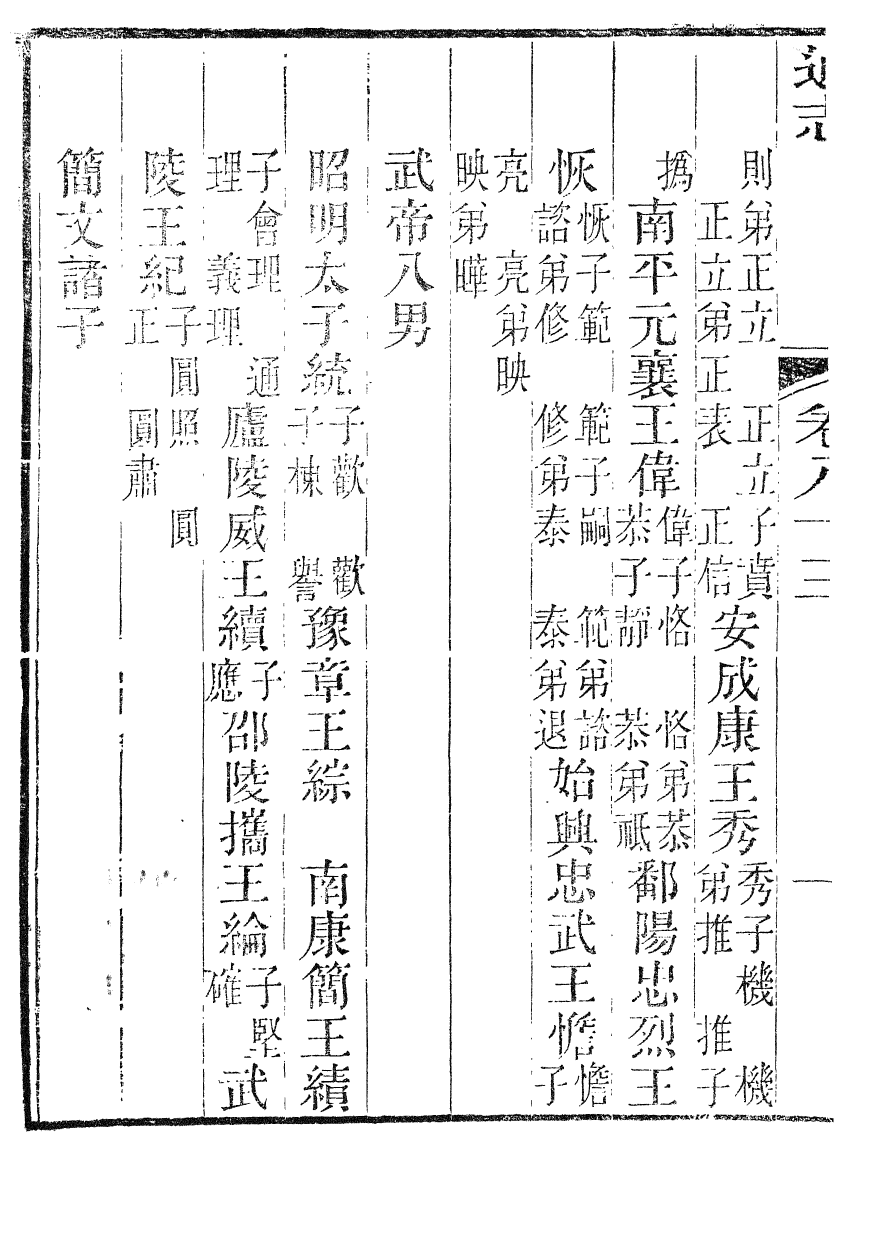 通志　卷八十三　一
則弟正立　正立子賁　正立弟正表　正信　安成康王秀　秀子機　機弟推　推子
撝　南平元襄王偉　偉子恪　恪弟恭　恭子靜　恭弟祗　鄱陽忠烈王
恢　恢子範　範子嗣　範弟諮　諮弟修　修弟泰　泰弟退　始興忠武王憺　憺子
亮　亮弟映　映弟曄
武帝八男
昭明太子統　子歡　歡子棟　譽　豫章王綜　南康簡王績
子會理　通理　義理　廬陵威王續　子應　邵陵攜王綸　子堅　確　武
陵王紀　子圓照　圓正　圓肅
簡文諸子